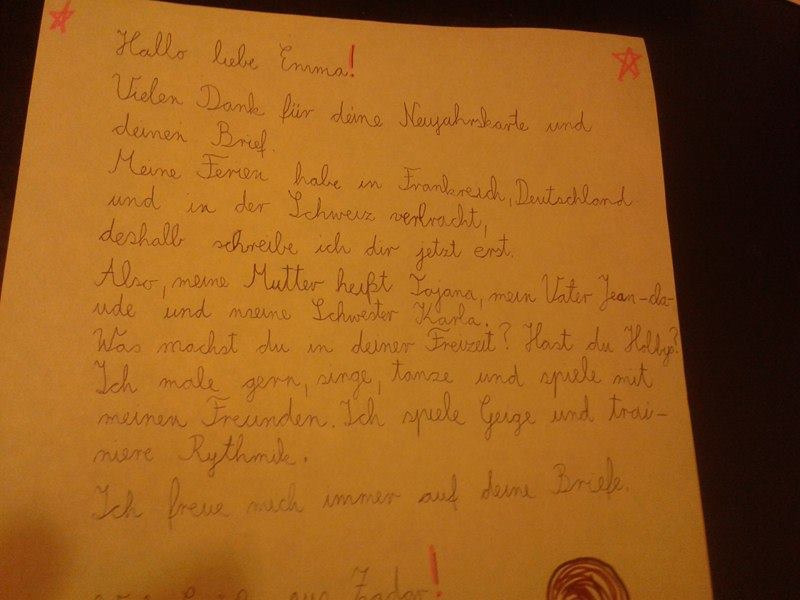 Hallo liebe Emma!
Vielen Dank für deine Neujahrskarte und
deinen Brief.
Meine Ferien habe in Frankreich, Deutschland
und in der Schweiz verbracht,
deshalb schreibe ich dir jetzt erst.
Also, meine Mutter heißt Tajana, mein Vater Jean-cla-
ude und meine Schwester Karla.
Was machst du in deiner Freizeit? Hast du Hobbys?
Ich male gern, singe, tanze und spiele mit
meinen Freunden. Ich spiele Geige und trai-
niere Rythmik.
Ich freue mich immer auf deine Briefe.
aus Zadar!